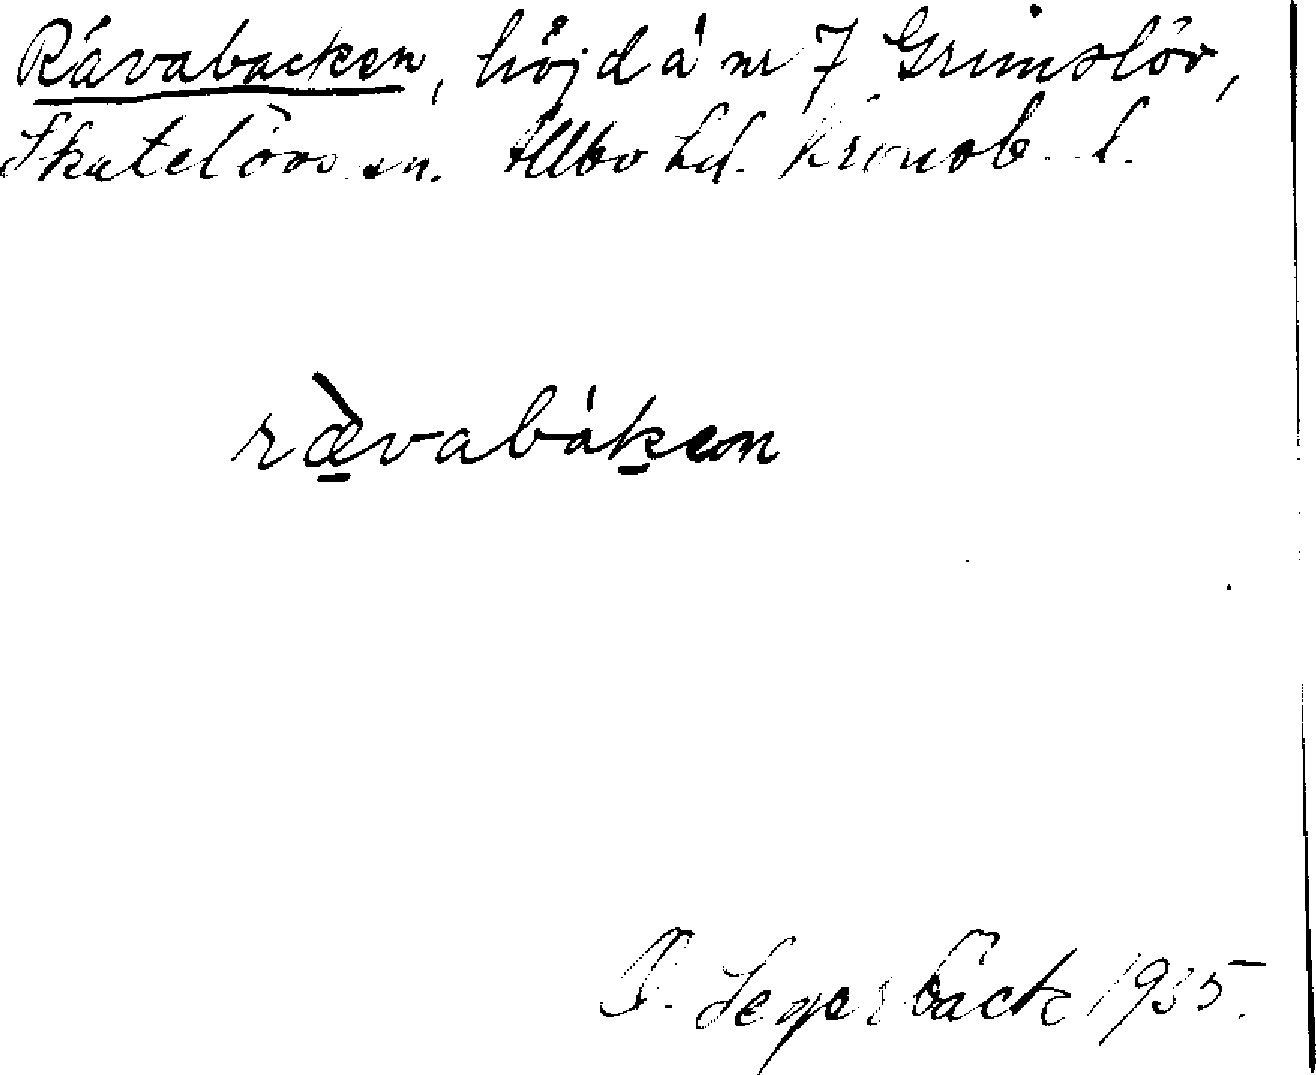 Rävabacken, höjd å nr 7 Grimslöv,
Skatelövs sn. Allbo hd. Kronob. l.
rævabáken
Segerbäck 1935.